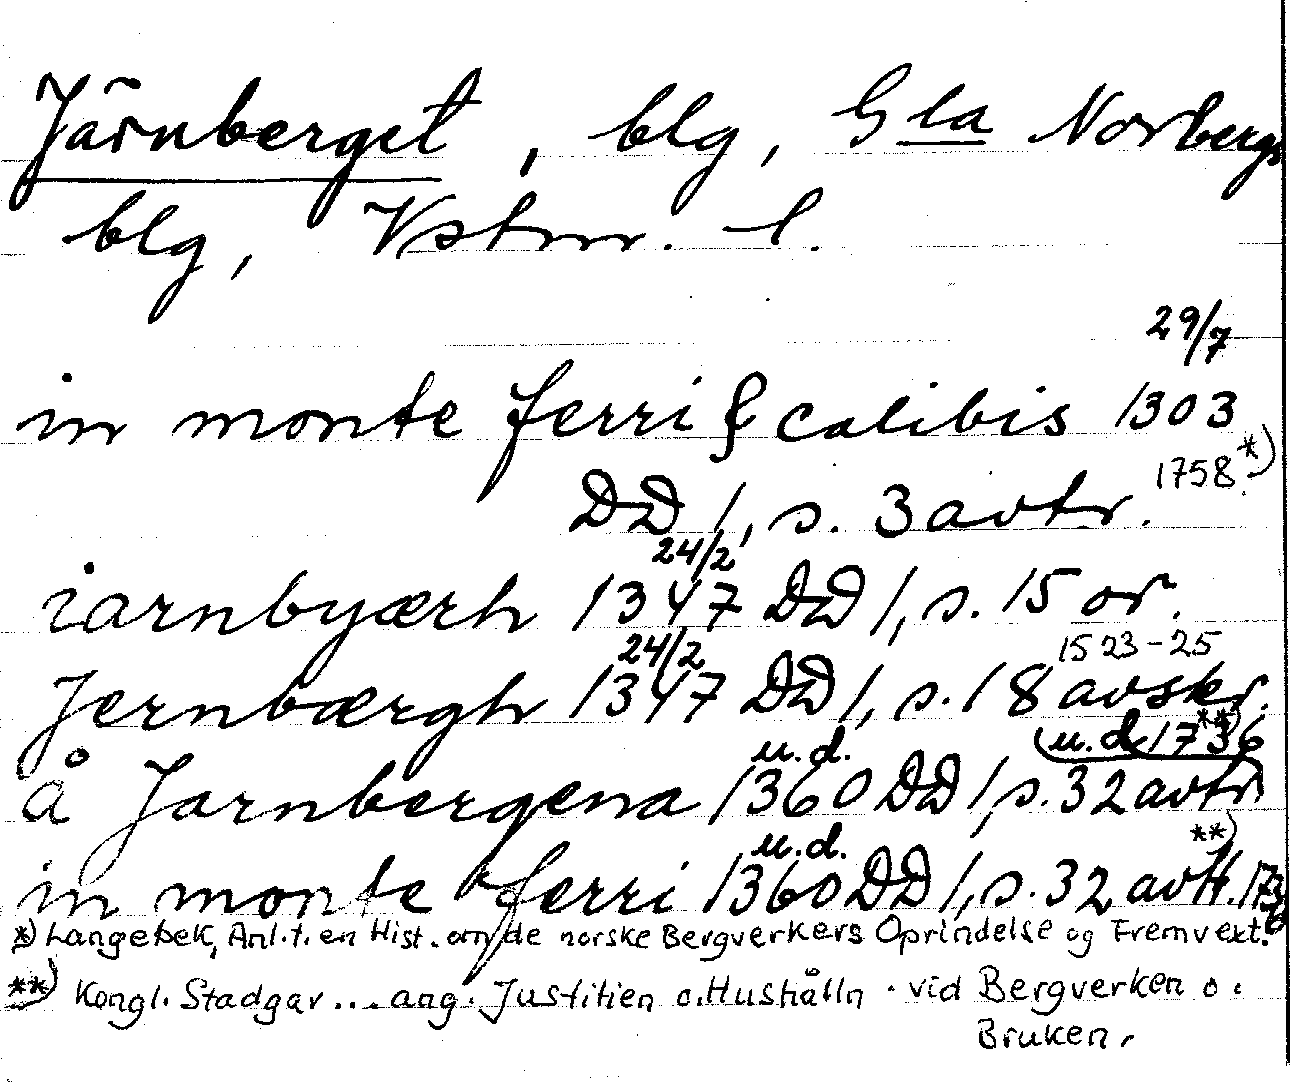 Järnberget, blg, Gla Norbergs
blg, Vstm. l.
29/7
in monte ferri & calibis 1303
1758 *)
DD 1, s. 3 avtr.
24/2
iarnbyærh 1347 DD 1, s. 15 or.
24/2 1523-25
Jernbærgh 1347 DD 1, s. 18 avskr.
u.d. u.d. 1736 **)
å Jarnbergena 1360 DD 1, s. 32 avtr.
u.d. **)
in monte ferri 1360 DD 1, s. 32 avtr. 1736
*) Langebek, Anl. t. en Hist. om de norske Bergverkers Oprindelse og Fremvext.
**) Kongl. Stadgar ... ang. Justitien o. Hushålln. vid Bergverken o.
Bruken.